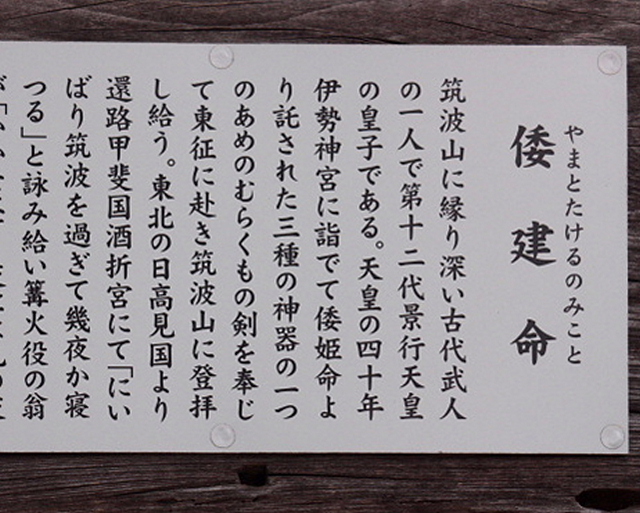 やまとたけるのみこと
倭建命
筑波山に縁り深い古代武人
の一人で第十二代景行天皇
の皇子である。天皇の四十年
伊勢神宮に詣でて倭姫命よ
り託された三種の神器の一つ
のあめのむらくもの剣を奉じ
て東征に赴き筑波山に登拝
し給う。東北の日高見国より
還路甲斐国酒折宮にて「にい
ばり筑波を過ぎて幾夜か寝
つる」と詠み給い篝火役の翁